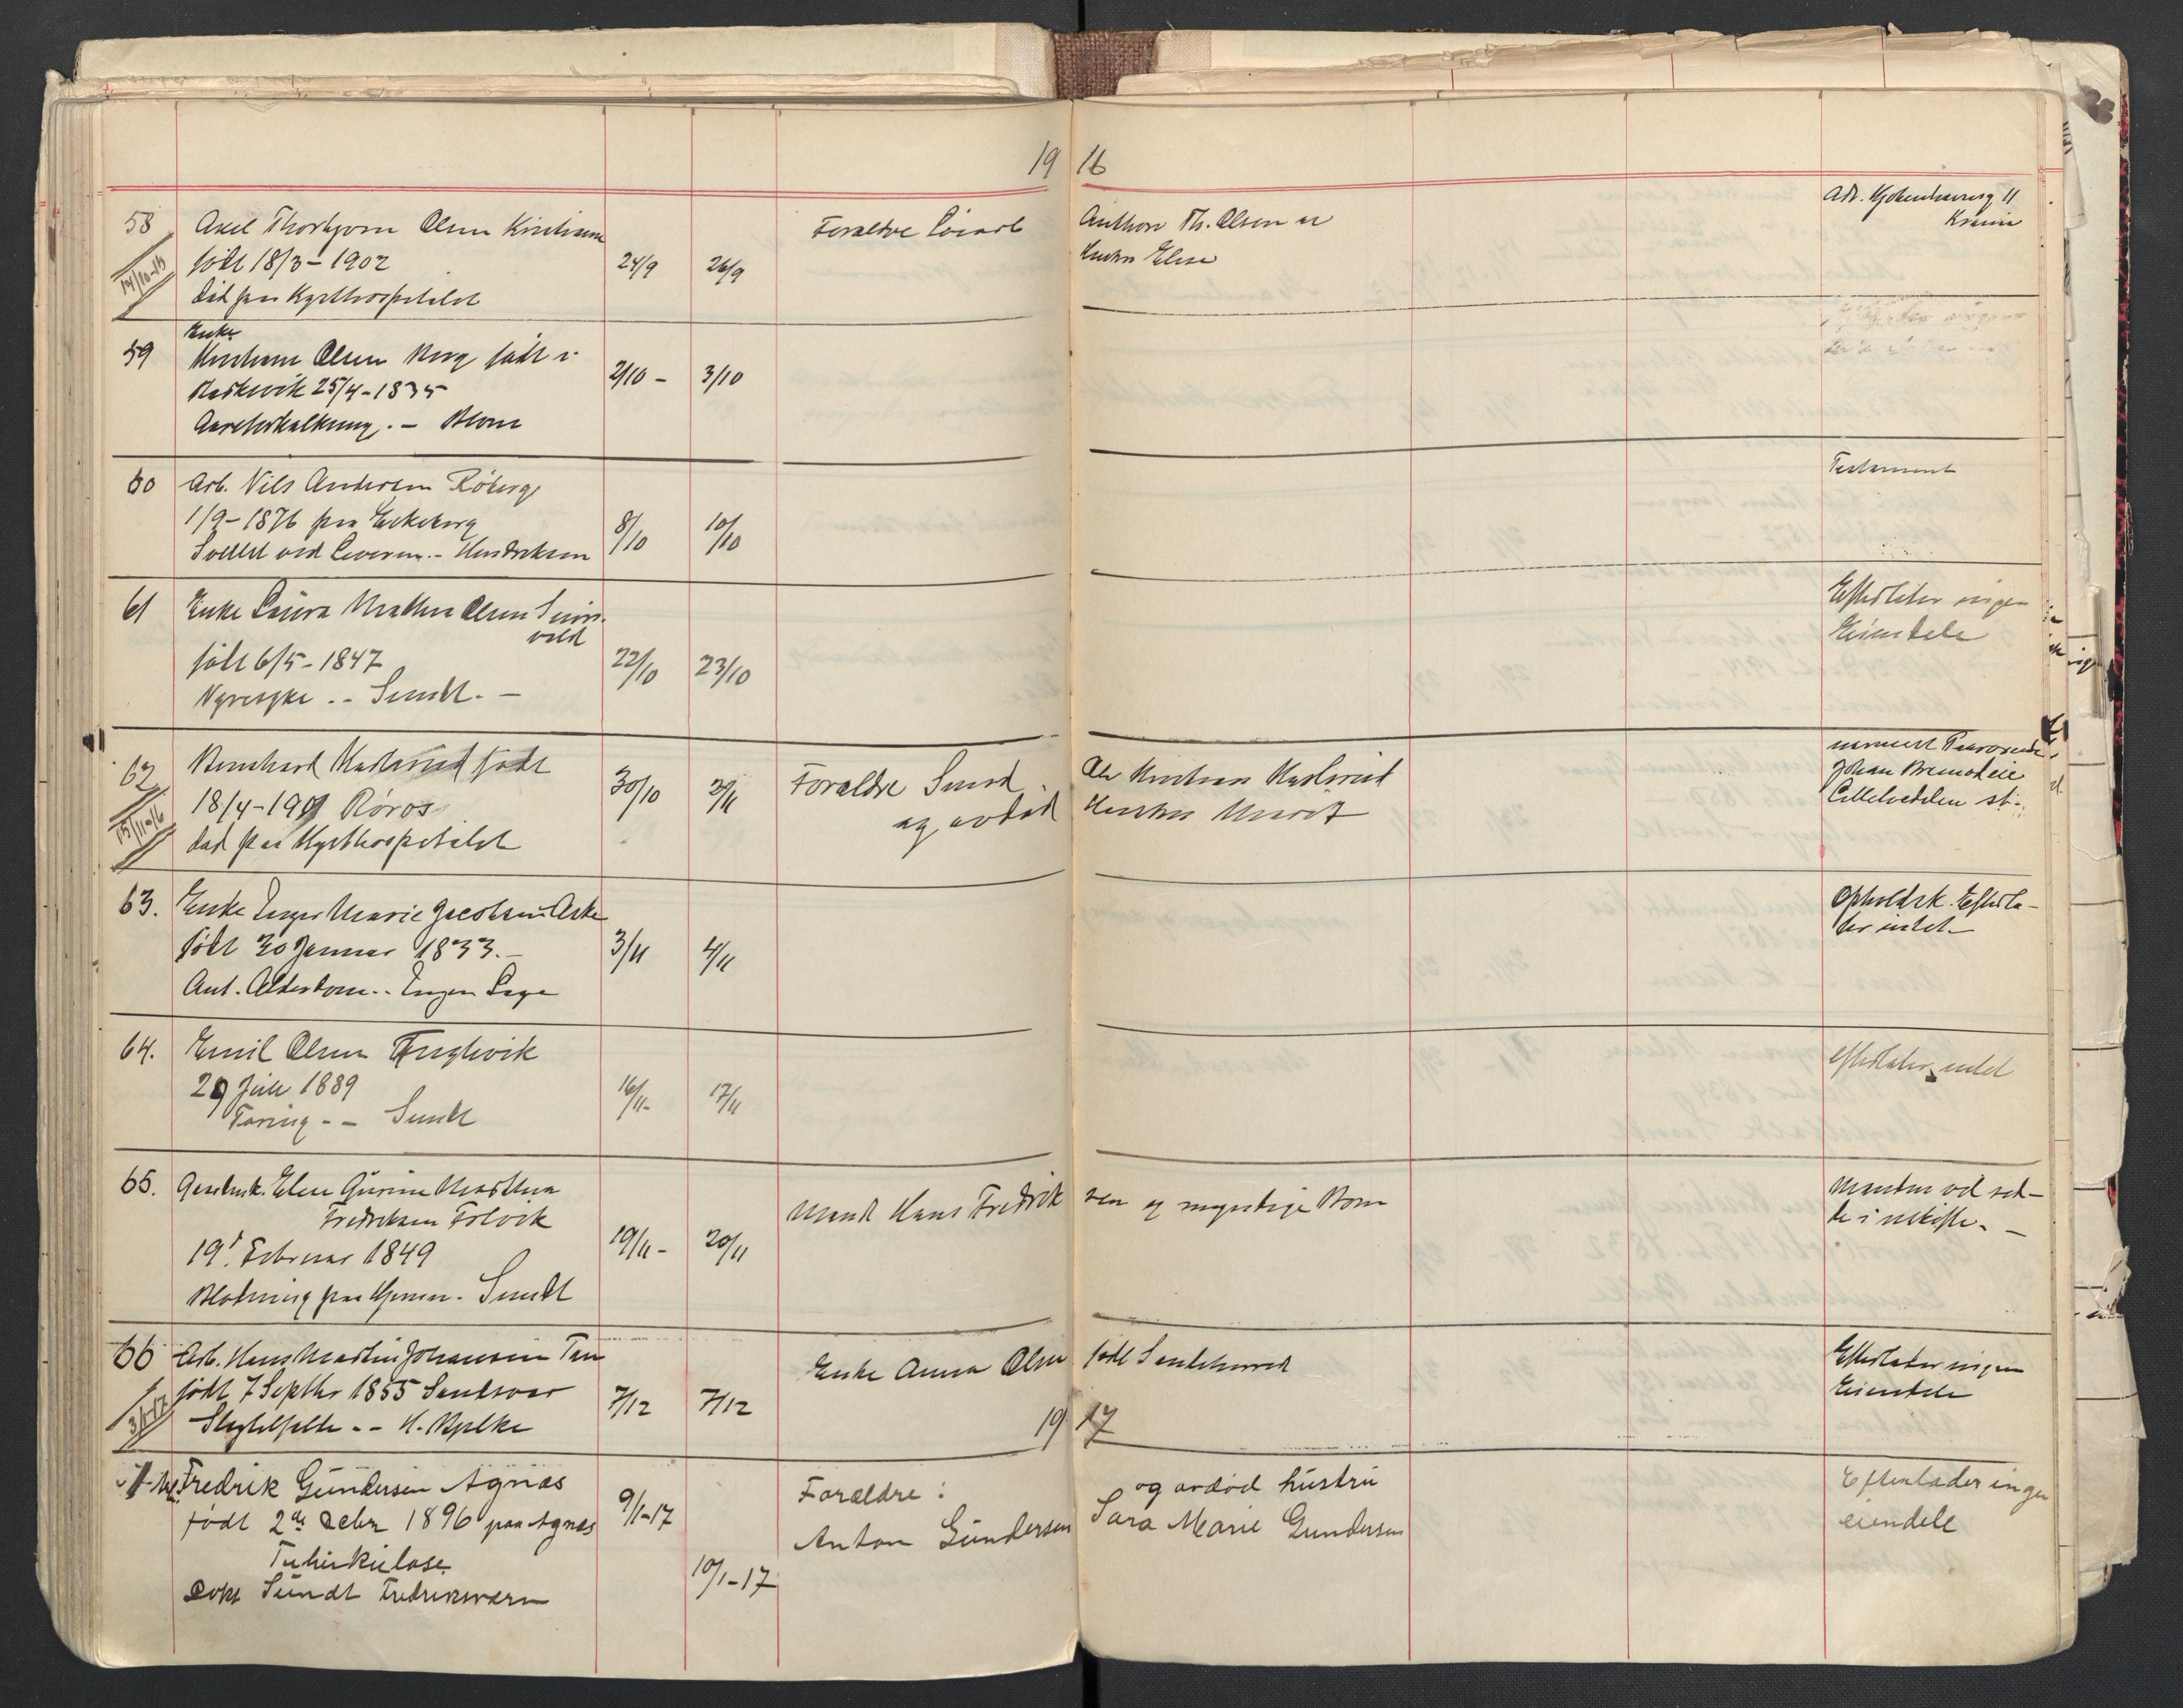 19 16
58 Axel Thorbjørn Olsen Kristiania
født 18/3 - 1902
død paa Kysthospitalet
24/9 26/9
Forældre
Anthon Th. Olsen og
Hustru Elise
Adr.
Krania
14/10-15
59 Enke
Olsen Berg født i
25/4 - 1835
Aareforkalkning. - Blom
2/10 - 3/10
60 Arb. Nils Andersen Røberg
1/9 - 1876 paa Eikeberg
Svulst ved Leveren. - Hendriksen
8/10 10/10
Testament
61 Enke Laura Mathea Olsen
vold
født 6/5 - 1847
Nyresyke .- Sundt. -
22/10 23/10
Efterlater ingen
Eiendele
62 Bernhard født
18/4 - 1901 Røros
død paa Kysthospitalet
15/11-16
30/10 2/11
Forældre
og avdød
Hustru Marit
nærmeste Paarørende
Johan
st.
63. Enke Inger Marie Jacobsen Aske
født 30 Januar 1833. -
Ant. Alderdom.- Ingen Læge
3/11 4/11
Opholdsk. Efterla-
ter intet. -
64. Emil Olsen Fuglevik
29 Juli 1889
Tæring - - Sundt
16/11- 17/11
efterlater intet
65. Gaardmk. Elen Gurine Marthea
Fredriksen Folvik
19. Februar 1849
Blødning paa Hjernen. - Sundt
19/11 - 20/11
Mand Hans Fredrik sen og myndige Børn
Manden vil sid-
de i uskifte. -
66 Arb. Hans Martin Johansen
født 7 Septbr 1855 Sandsvær
Slagtilfælde - - H. Bylke
7/12 7/12
Enke Anna Olsen født
Efterlater ingen
Eiendele
19 17
1 Fredrik Gundersen Agnæs
født 2de Debr 1896 paa Agnes
Tuberkulose
Dokt Sundt Fredriksværn
9/1-17
10/1-17
Forældre :
Anton Gundersen
og avdød hustru
Sara Marie Gundersen
Efterlader ingen
eiendele